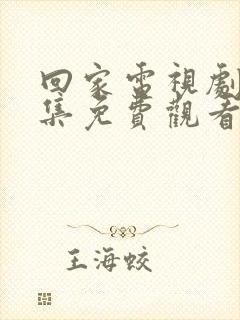 回家電視劇
集免費觀看
王海蛟